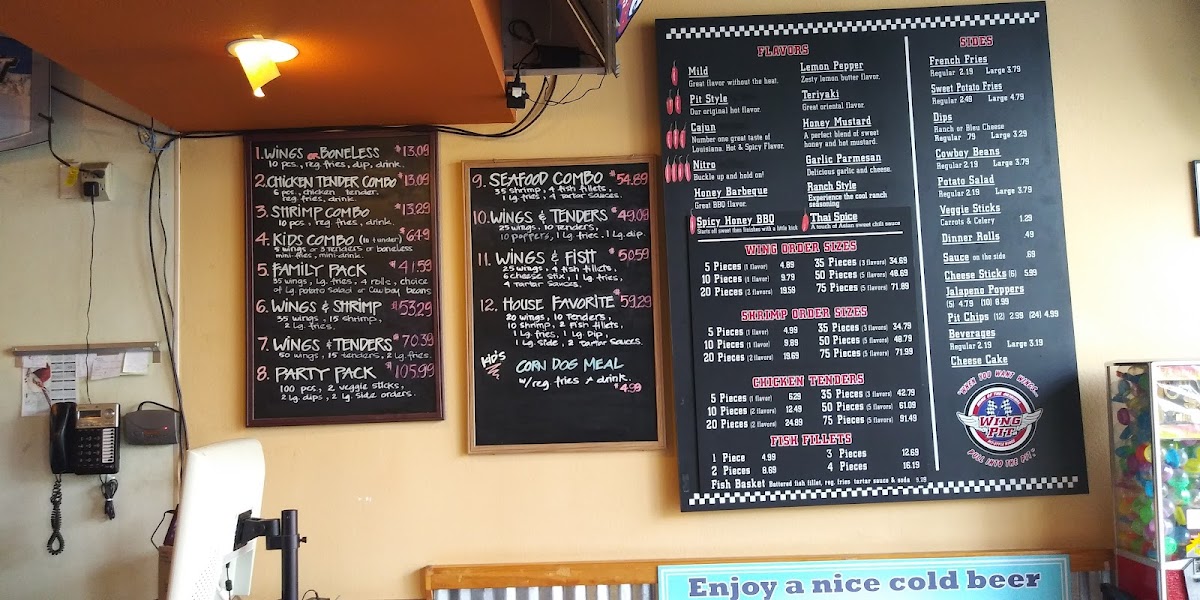 1. WINGS OR BONELESS $13.09
10 pcs., reg. fries, dip, drink.
2. CHICKEN TENDER COMBO $13.09
6 pcs. chicken tender,
reg. fries, drink.
3. SHRIMP COMBO $13.29
10 pcs., reg. fries, drink.
4. KIDS COMBO (10 & under) $6.49
5 wings or 3 tenders or boneless
mini-fries, mini-drink.
5. FAMILY PACK $41.59
35 wings, 1 g. fries, 4 rolls, choice
of Lg. potato salad or cowboy beans
6. WINGS & SHRIMP $53.29
35 wings, 15 shrimp,
2 Lg. fries.
7. WINGS & TENDERS $70.39
50 wings, 15 tenders, 2 Lg. fries.
8. PARTY PACK $105.99
100 pcs., 2 veggie sticks,
2 Lg. dips, 2 Lg. side orders.
9. SEAFOOD COMBO $54.89
35 shrimp, 4 fish fillets,
1 Lg. fries, 4 Tartar sauces.
10. WINGS & TENDERS $49.09
25 wings, 10 tenders,
10 poppers, 1 Lg. fries, 1 Lg. dip.
11. WINGS & FISH $50.59
25 wings, 4 fish fillets,
6 cheese stix, 1 Lg fries,
4 Tartar sauces.
12. HOUSE FAVORITE $59.29
20 wings, 10 Tenders,
10 shrimp, 2 Fish fillets,
1 Lg. fries, 1 Lg. Dip,
1 Lg. side, 2 Tartar Sauces.
kid's
CORN DOG MEAL
w/reg fries & drink.
$4.99
FLAVORS
Mild
Great flavor without the heat.
Pit Style
Our original hot flavor.
Cajun
Number one great taste of
Louisiana. Hot & Spicy Flavor.
Nitro
Buckle up and hold on!
Honey Barbeque
Great BBQ flavor.
Spicy Honey BBQ
Starts off sweet then finishes with a little kick
Lemon Pepper
Zesty lemon butter flavor.
Teriyaki
Great oriental flavor.
Honey Mustard
A perfect blend of sweet
honey and hot mustard.
Garlic Parmesan
Delicious garlic and cheese.
Ranch Style
Experience the cool ranch
seasoning
Thai Spice
A touch of Asian sweet chili sauce
WING ORDER SIZES
5 Pieces (1 flavor) 4.89 35 Pieces (3 flavors) 34.69
10 Pieces (1 flavor) 9.79 50 Pieces (5 flavors) 48.69
20 Pieces (2 flavors) 19.59 75 Pieces (5 flavors) 71.89
SHRIMP ORDER SIZES
5 Pieces (1 flavor) 4.99 35 Pieces (3 flavors) 34.79
10 Pieces (1 flavor) 9.89 50 Pieces (5 flavors) 48.79
20 Pieces (2 flavors) 19.69 75 Pieces (5 flavors) 71.99
CHICKEN TENDERS
5 Pieces (1 flavor) 6.29 35 Pieces (3 flavors) 42.79
10 Pieces (2 flavors) 12.49 50 Pieces (5 flavors) 61.09
20 Pieces (2 flavors) 24.89 75 Pieces (5 flavors) 91.49
FISH FILLETS
1 Piece 4.99 3 Pieces 12.69
2 Pieces 8.69 4 Pieces 16.19
Fish Basket Battered fish fillet, reg. fries tartar sauce & soda 9.29
SIDES
French Fries
Regular 2.19 Large 3.79
Sweet Potato Fries
Regular 2.49 Large 4.79
Dips
Ranch or Bleu Cheese
Regular .79 Large 3.29
Cowboy Beans
Regular 2.19 Large 3.79
Potato Salad
Regular 2.19 Large 3.79
Veggie Sticks
Carrots & Celery 1.29
Dinner Rolls .49
Sauce on the side .69
Cheese Sticks (6) 5.99
Jalapeno Poppers
(5) 4.79 (10) 8.99
Pit Chips (12) 2.99 (24) 4.99
Beverages
Regular 2.19 Large 3.19
Cheese Cake
"WHEN YOU WANT WINGS...
WING
PIT
PULL INTO THE PIT"
Enjoy a nice cold beer